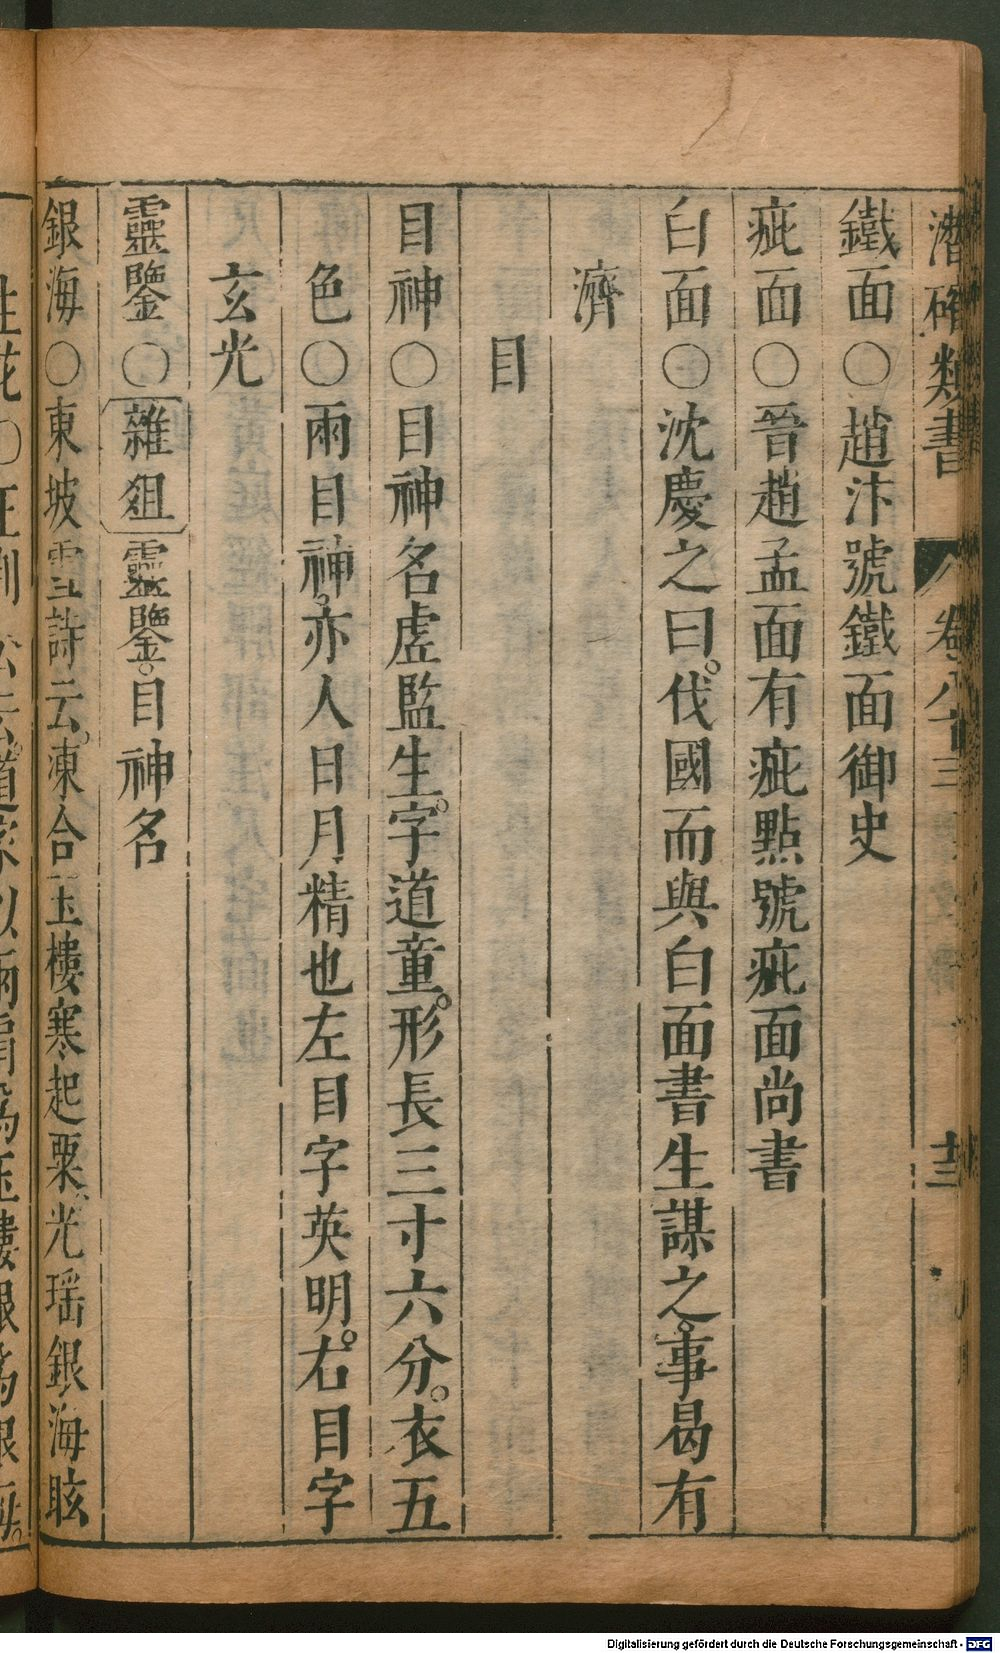 潛確類書 卷八十三 十三
鐵面〇趙汴號鐵面御史
疵面〇晉趙孟面有疵點號疵面尚書
白面〇沈慶之曰。伐國而與白面書生謀之。事曷有
濟
目
目神〇目神名虗監生。字道童。形長三寸六分。衣五
色〇兩目神。亦人日月精也左目字英明。右目字
玄光
靈鑒〇雜俎靈鑒。目神名
銀海〇東坡雪詩云。凍合玉樓寒起粟。光瑶銀海眩
生花〇王荆公云。道家以兩肩為玉樓眼為銀海。
Digitalisierung gefördert durch die Deutsche Forschungsgemeinschaft - DFG